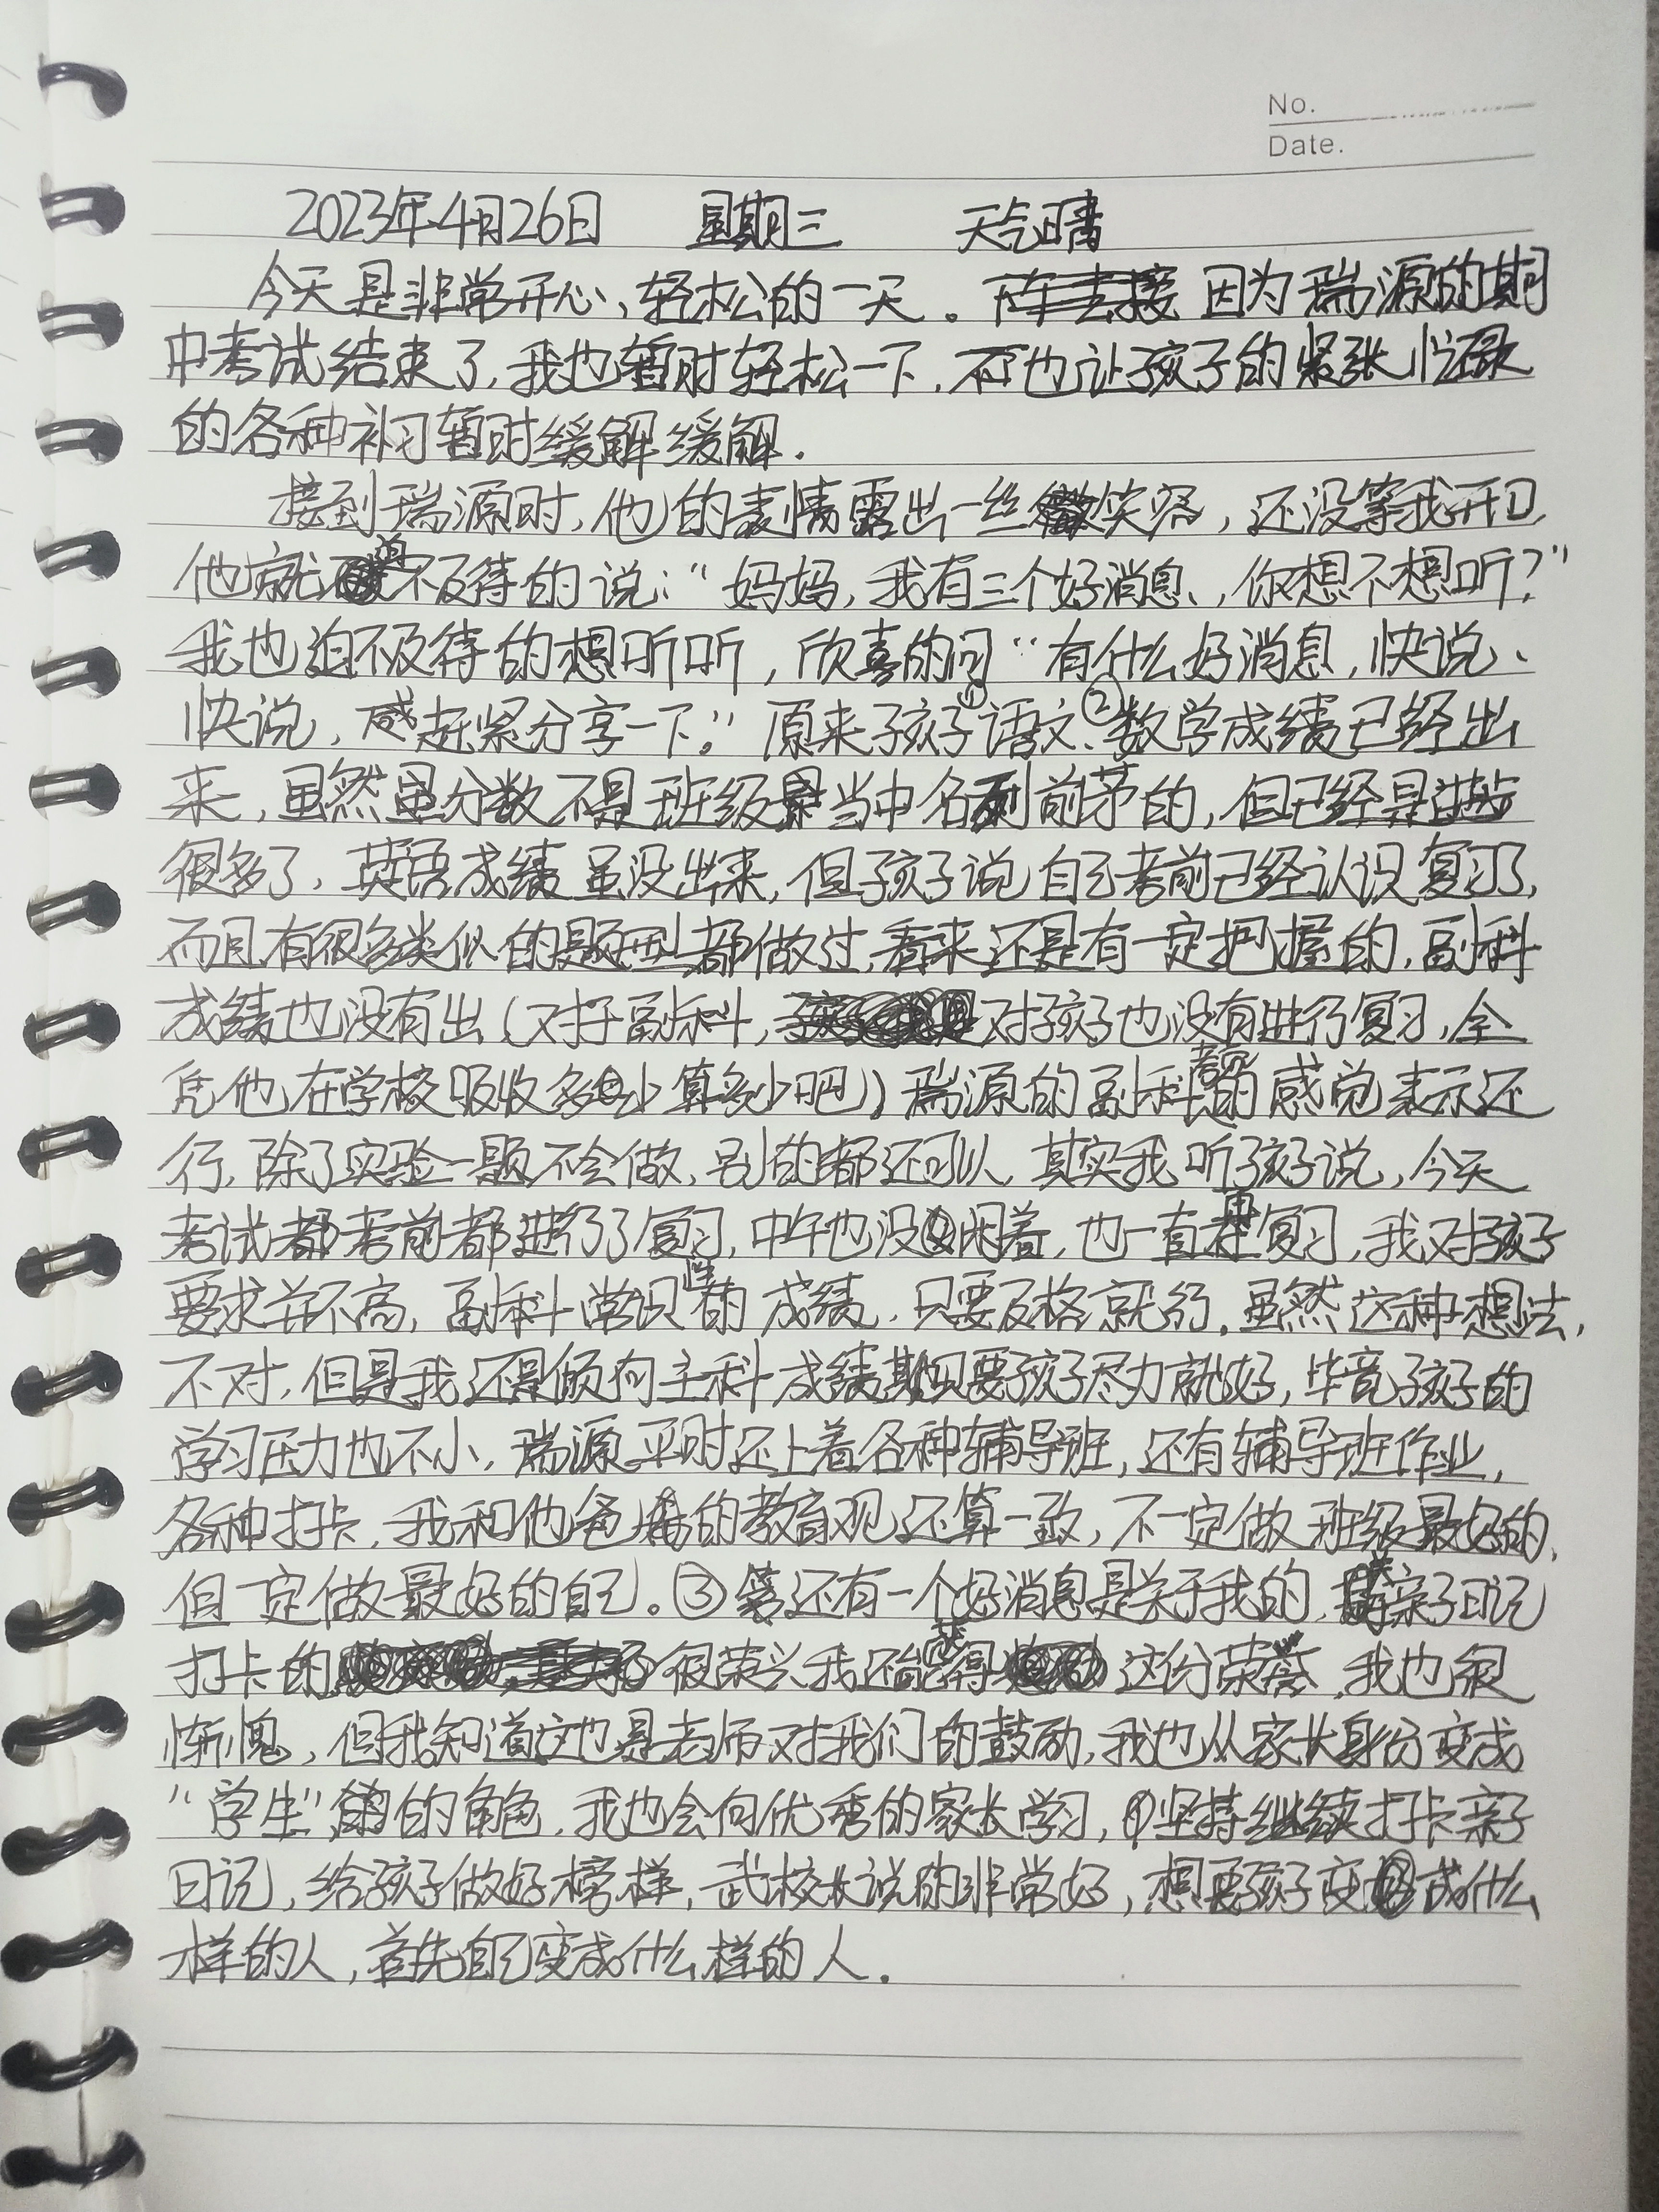 No.
Date.
2023年4月26日 星期三 天气晴
今天是非常开心、轻松的一天。因为瑞源的期
中考试结束了,我也暂时轻松一下,不也让孩子的紧张忙碌
的各种补习暂时缓解缓解.
接到瑞源时,他的表情露出一丝微笑容,还没等我开口,
他就迫不及待的说:“妈妈,我有三个好消息、,你想不想听?”
我也迫不及待的想听听,欣喜的问“有什么好消息,快说、
快说,赶紧分享一下。”原来孩子①语文、②数学成绩已经出
来,虽然虽分数不是班级当中名列前茅的,但已经是进步
很多了,英语成绩虽没出来,但孩子说自己考前已经认识复习了,
而且有很多类似的题型都做过,看来还是有一定把握的,副科
成绩也没有出(对于副科,对孩子也没有进行复习,全
凭他在学校吸收多少算多少吧)瑞源的副科考完的感觉表示还
行,除了实验一题不会做,别的都还可以,其实我听孩子说,今天
考试都考前都进行了复习,中午也没闲着,也一直再复习,我对孩子
要求并不高,副科常识性的成绩,只要及格就行,虽然这种想法,
不对,但是我还是倾向主科成绩,只要孩子尽力就好,毕竟孩子的
学习压力也不小,瑞源平时还上着各种辅导班,还有辅导班作业,
各种打卡,我和他爸爸的教育观还算一致,不一定做班级最好的,
但一定做最好的自己。③还有一个好消息是关于我的,亲子日记
打卡的很荣兴我还能获得这份荣誉,我也很
惭愧,但我知道这也是老师对我们的鼓励,我也从家长身份变成
“学生”的角色,我也会向优秀的家长学习,坚持继续打卡亲子
日记,给孩子做好榜样,武校长说的非常好,想要孩子变成什么
样的人,首先自己变成什么样的人.